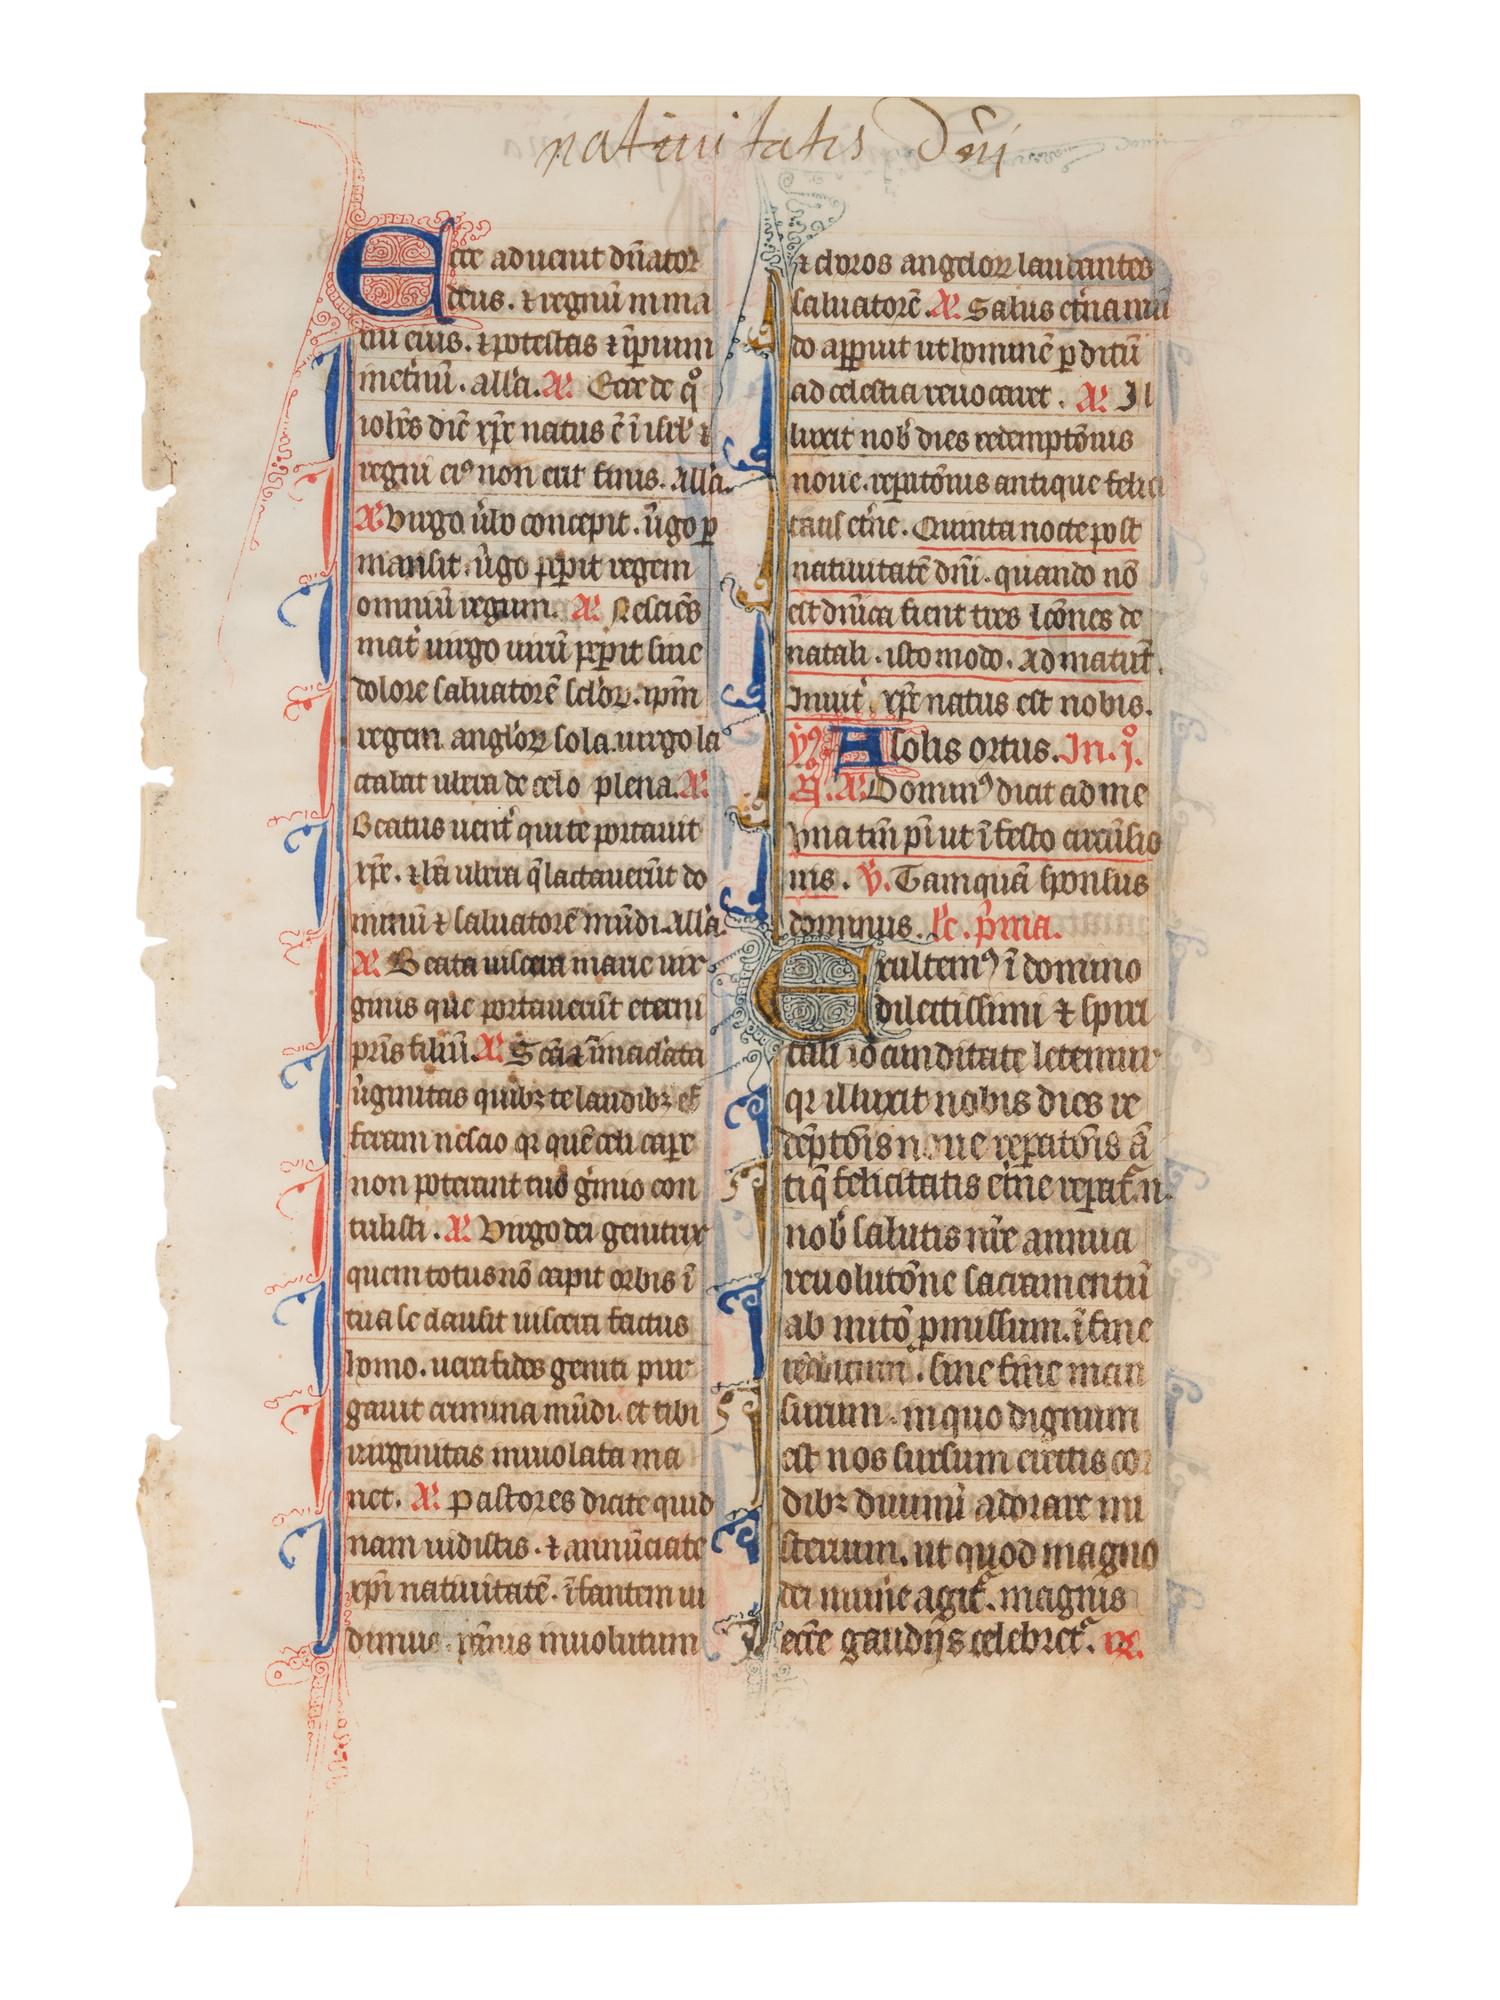 natiuitatis dñi
Ecce aduenit dñator
deus. ⁊ regnũ in ma
nu eius. ⁊ potestas ⁊ ipium
inet̾nũ. all̃a. A̾. Ecce de q̊
iolr̃s diẽ xp̃c natus ẽ ĩ isrl̾ ⁊
regni ei⁹ non erit finis. all̃a.
A̾. Virgo ũbo concepit. ũgo p
mansit. ũgo pep̾it regem
omniũ regum. A̾. Nesciẽs
mat̾ uirgo uirũ pep̾it sine
dolore saluatorẽ sc̃loꝝ. ip̃m
regem angl̾oꝝ sola uirgo la
ctabat ubera de celo plena. A̾.
Beatus uent̾ qui te portauit
xp̃e. ⁊ bt̃a ubera q̃ lactauerũt do
minũ ⁊ saluatorẽ mũdi. all̃a.
A̾. Beata uiscera marie uir
ginis que portauerũt eterni
pr̃is filiũ. A̾. Sc̃a ⁊ ĩmac̾lata
ũginitas quibꝫ te laudibꝫ ef
feram nescio qr quẽ celi cap̾e
non poterant tuo g̾mio con
tulisti. A̾. Virgo dei genitrix
quem totus nõ capit orbis ĩ
tua se clausit uiscera factus
homo. uera fides geniti pur
gauit crimina mũdi. et tibi
uirginitas inuiolata ma
net. A̾. Pastores dicite quid
nam uidistis. ⁊ annũciate
xp̃i natiuitatẽ. ĩfantem ui
dimus pãnis inuolutum
⁊ choros angeloꝝ laudantes
saluatorẽ. A̾. Salus et̾na mũ
do apparuit ut hominẽ p ditũ
ad celestia reuocaret. A̾. Il
luxit nob̾ dies redemptõnis
noue. repatõnis antique felici
tatis et̾ne. Quinta nocte post
natiuitatẽ dñi. quando nõ
est dñica fient tres lcõnes de
natali. isto modo. Ad matut̾.
Inuit̾. xp̃c natus est nobis.
ymp⁹ A solis ortus. In. j̊.
N̾. A̾. Domin⁹ dixit ad me
vna tm̃ p̃i ut ĩ festo circũsio
nis. V̾. Tamquã sponsus
dominus. lc̃. p̾ma.
Exultem⁹ ĩ domino
dilectissimi ⁊ spiri
tali iocunditate letemur
qr illuxit nobis dies re
dẽptõis noue repatõis ã
tiq̃ felicitatis et̾ne repat̾. n
nob̾ salutis nr̃e annua
reuolutõne sacramentũ
ab initõ pmissum. ĩ fine
redditum. sine fine man
surum. in quo dignum
est nos sursum erectis cor
dibꝫ diuinũ adorare mi
sterium. ut quod magno
dei mun̾e agit̾. magnis
eccl̃e gaudijs celebret̾. R̾.